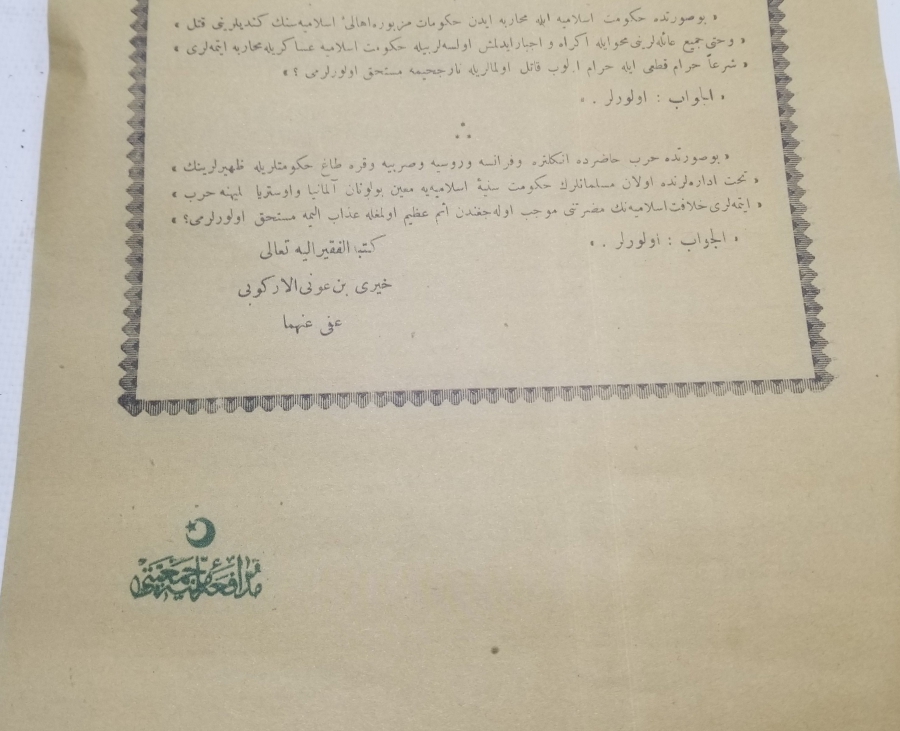 « بوصورتده حكومت اسلاميه ايله محاربه ايدن حكومات مزبوره اهالئ اسلاميه‌سنك كنديلرينی قتل »
« وحتی جميع عائله‌لرينی محو ايله اكراه و اجبار ايدلمش اولسه‌لر بيله حكومت اسلاميه عساكريله محاربه ايتمه‌لری »
« شرعاً حرام قطعی ايله حرام اولوب قاتل اولمالريله نارجحيمه مستحق اولورلرمی ؟ »
« الجواب : اولورلر . »
« بوصورتده حرب حاضرده انكلتره وفرانسه وروسيه وصربيه وقره طاغ حكومتلريله ظهيرلرينك »
« تحت اداره‌لرنده اولان مسلمانلرك حكومت سنيۀ اسلاميه‌يه معين بولونان آلمانيا واوستريا عليهنه حرب »
« ايتمه‌لری خلافت اسلاميه‌نك مضرتنی موجب اوله‌جغندن اثم عظيم اولمغله عذاب اليمه مستحق اولورلرمی؟ »
« الجواب : اولورلر . »
كتبه الفقير اليه تعالی
خيری بن عونی الاركوبی
عفی عنهما
مدافعۀ مليه جمعيتی